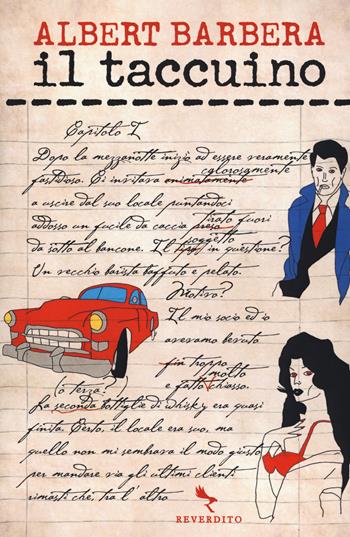 ALBERT BARBERA
il taccuino
Capitolo I
Dopo la mezzanotte iniziò ad essere veramente
calorosamente
fastidioso. Ci invitava animatamente
a uscire dal suo locale puntandoci
tirato fuori
addosso un fucile da caccia preso
soggetto
da sotto al bancone. Il tipo in questione?
Un vecchio barista baffuto e pelato.
Motivo?
Il mio socio ed io
avevamo bevuto
fin troppo
molto
e fatto chiasso.
o terza?
La seconda bottiglia di whisky era quasi
finita. Certo, il locale era suo, ma
quello non mi sembrava il modo giusto
per mandare via gli ultimi clienti
rimasti che, tra l'altro
REVERDITO